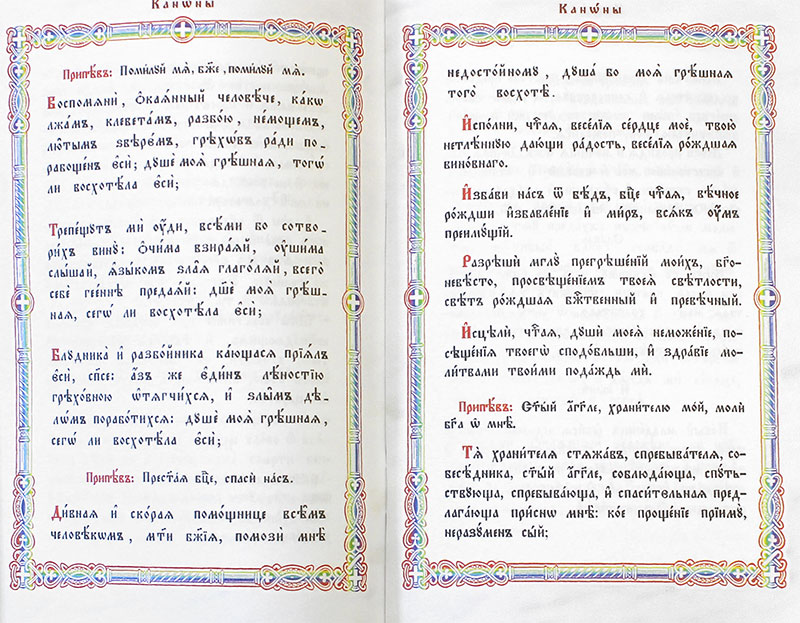 Канѡ́ны
Припѣ́въ: Поми́лꙋй мѧ̀, бж҃е, поми́лꙋй мѧ̀.
Воспомѧнѝ, ѻ҆каѧ́нный человѣ́че, ка́кѡ
лжа́мъ, клевета́мъ, разбо́ю, не́мощемъ,
лю́тымъ ѕвѣре́мъ, грѣхѡ́въ ра́ди по-
рабоще́нъ є҆сѝ; дꙋшѐ моѧ̀ грѣ́шнаѧ, тогѡ́
ли восхотѣ́ла є҆сѝ;
Трепе́щꙋтъ мѝ ᲂу҆́ди, всѣ́ми бо сотво-
ри́хъ винꙋ̀: ѻ҆чи́ма взира́ѧй, ᲂу҆ши́ма
слы́шай, ѧ҆зы́комъ ѕла́ѧ глаго́лѧй, всего̀
себѐ гее́ннѣ преда́ѧй: дш҃ѐ моѧ̀ грѣ́ш-
наѧ, сегѡ́ ли восхотѣ́ла є҆сѝ;
Блꙋдника̀ и҆ разбо́йника ка́ющасѧ прїѧ́лъ
є҆сѝ, сп҃се: а҆́зъ же є҆ди́нъ лѣ́ностїю
грѣхо́вною ѡ҆тѧгчи́хсѧ, и҆ ѕлы̑мъ дѣ-
лѡ́мъ порабо́тихсѧ: дꙋшѐ моѧ̀ грѣ́шнаѧ,
сегѡ́ ли восхотѣ́ла є҆сѝ;
Припѣ́въ: Прест҃а́ѧ бц҃е, спасѝ на́съ.
Ди́внаѧ и҆ ско́раѧ помо́щнице всѣ̑мъ
человѣ́кѡмъ, мт҃и бж҃їѧ, помозѝ мнѣ̀
Канѡ́ны
недосто́йномꙋ, дꙋша́ бо моѧ̀ грѣ́шнаѧ
того̀ восхотѣ̀.
И҆спо́лни, чⷭ҇таѧ, весе́лїѧ се́рдце моѐ, твою̀
нетлѣ́ннꙋю даю́щи ра́дость, весе́лїѧ ро́ждшаѧ
вино́внаго.
И҆зба́ви на́съ ѿ бѣ́дъ, бц҃е чⷭ҇таѧ, вѣ́чное
ро́ждши и҆збавле́нїе и҆ ми́ръ, всѧ́къ ᲂу҆́мъ
преимꙋ́щїй.
Разрѣшѝ мглꙋ̀ прегрѣше́нїй мои́хъ, бг҃о-
невѣ́сто, просвѣще́нїемъ твоеѧ̀ свѣ́тлости,
свѣ́тъ ро́ждшаѧ бж҃твенный и҆ превѣ́чный.
И҆сцѣлѝ, чⷭ҇таѧ, дꙋшѝ моеѧ̀ неможе́нїе, по-
сѣще́нїѧ твоегѡ̀ сподо́бльши, и҆ здра́вїе мо-
ли́твами твои́ми пода́ждь мѝ.
Припѣ́въ: Ст҃ы́й а҆́гг҃ле, храни́телю мо́й, молѝ
бг҃а ѡ҆ мнѣ̀.
Тѧ̀ храни́телѧ стѧжа́въ, спребыва́телѧ, со-
бесѣ́дника, ст҃ы́й а҆́гг҃ле, соблюда́юща, спꙋ́ть-
ствꙋюща, спребыва́юща, и҆ спаси́тельнаѧ пред-
лага́юща при́снѡ мнѣ̀: ко́е проще́нїе прїимꙋ̀,
неразꙋ́менъ сы́й;